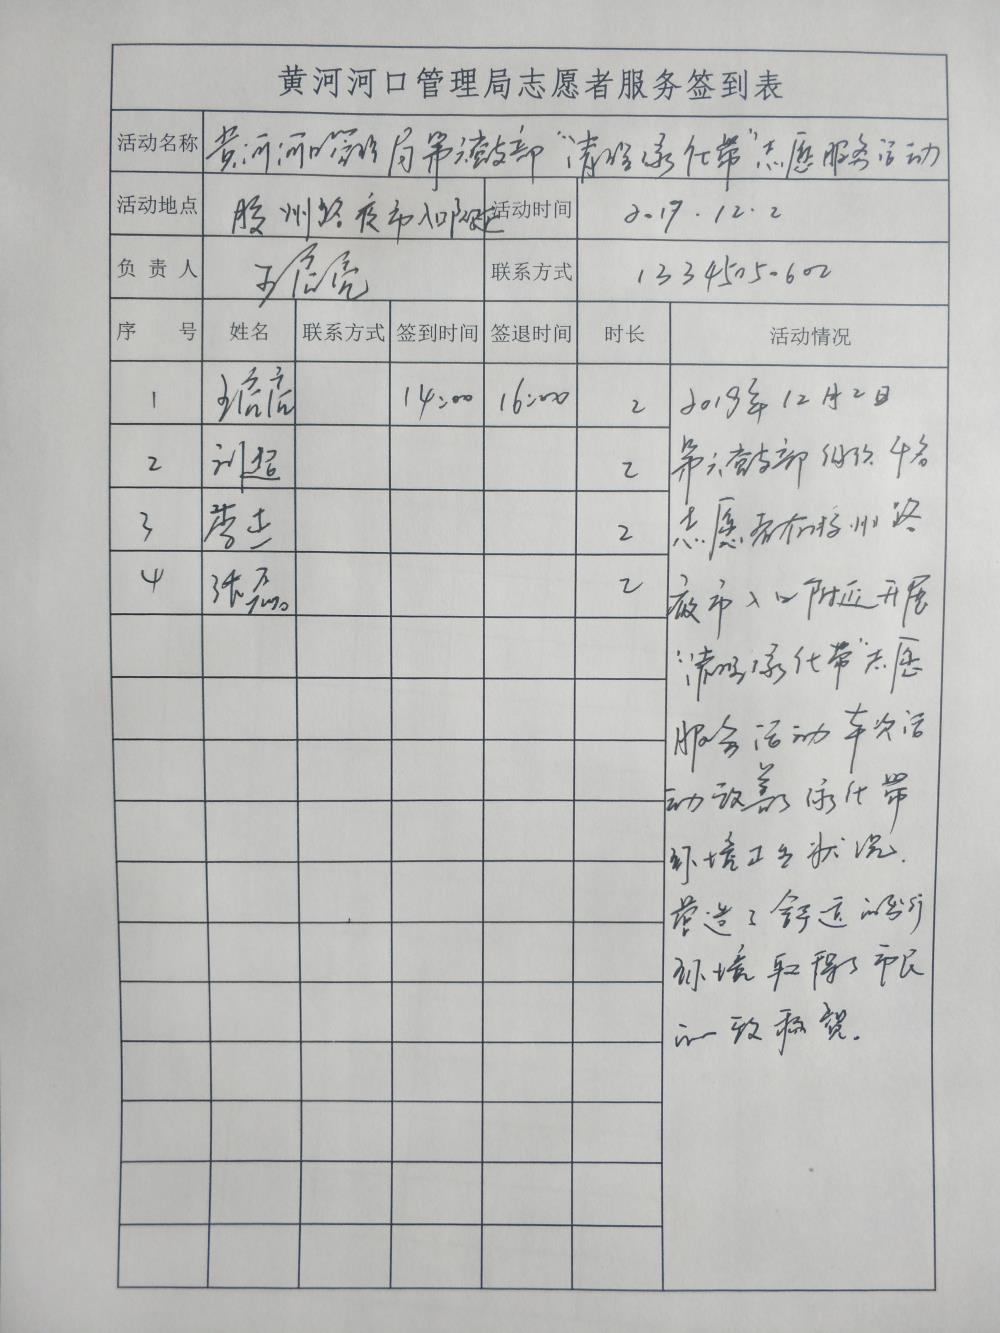 黄河河口管理局志愿者服务签到表
活动名称 黄河河口管理局第六党支部“清洁绿化带”志愿服务活动
活动地点 胶州路夜市入口附近 活动时间 2019.12.2
负责人 联系方式 13345050602
序号 姓名 联系方式 签到时间 签退时间 时长 活动情况
1 14:00 16:00 2
2 刘超 2
3 李杰 2
4 张磊 2
2019年12月2日
第六党支部组织4名
志愿者在胶州路
夜市入口附近开展
“清洁绿化带”志愿
服务活动 本次活
动改善了绿化带
环境卫生状况.
营造了舒适的出行
环境取得了市民
的一致称赞.